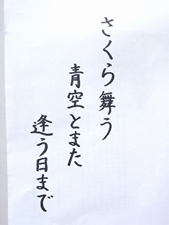 さくら舞う
青空とまた
逢う日まで